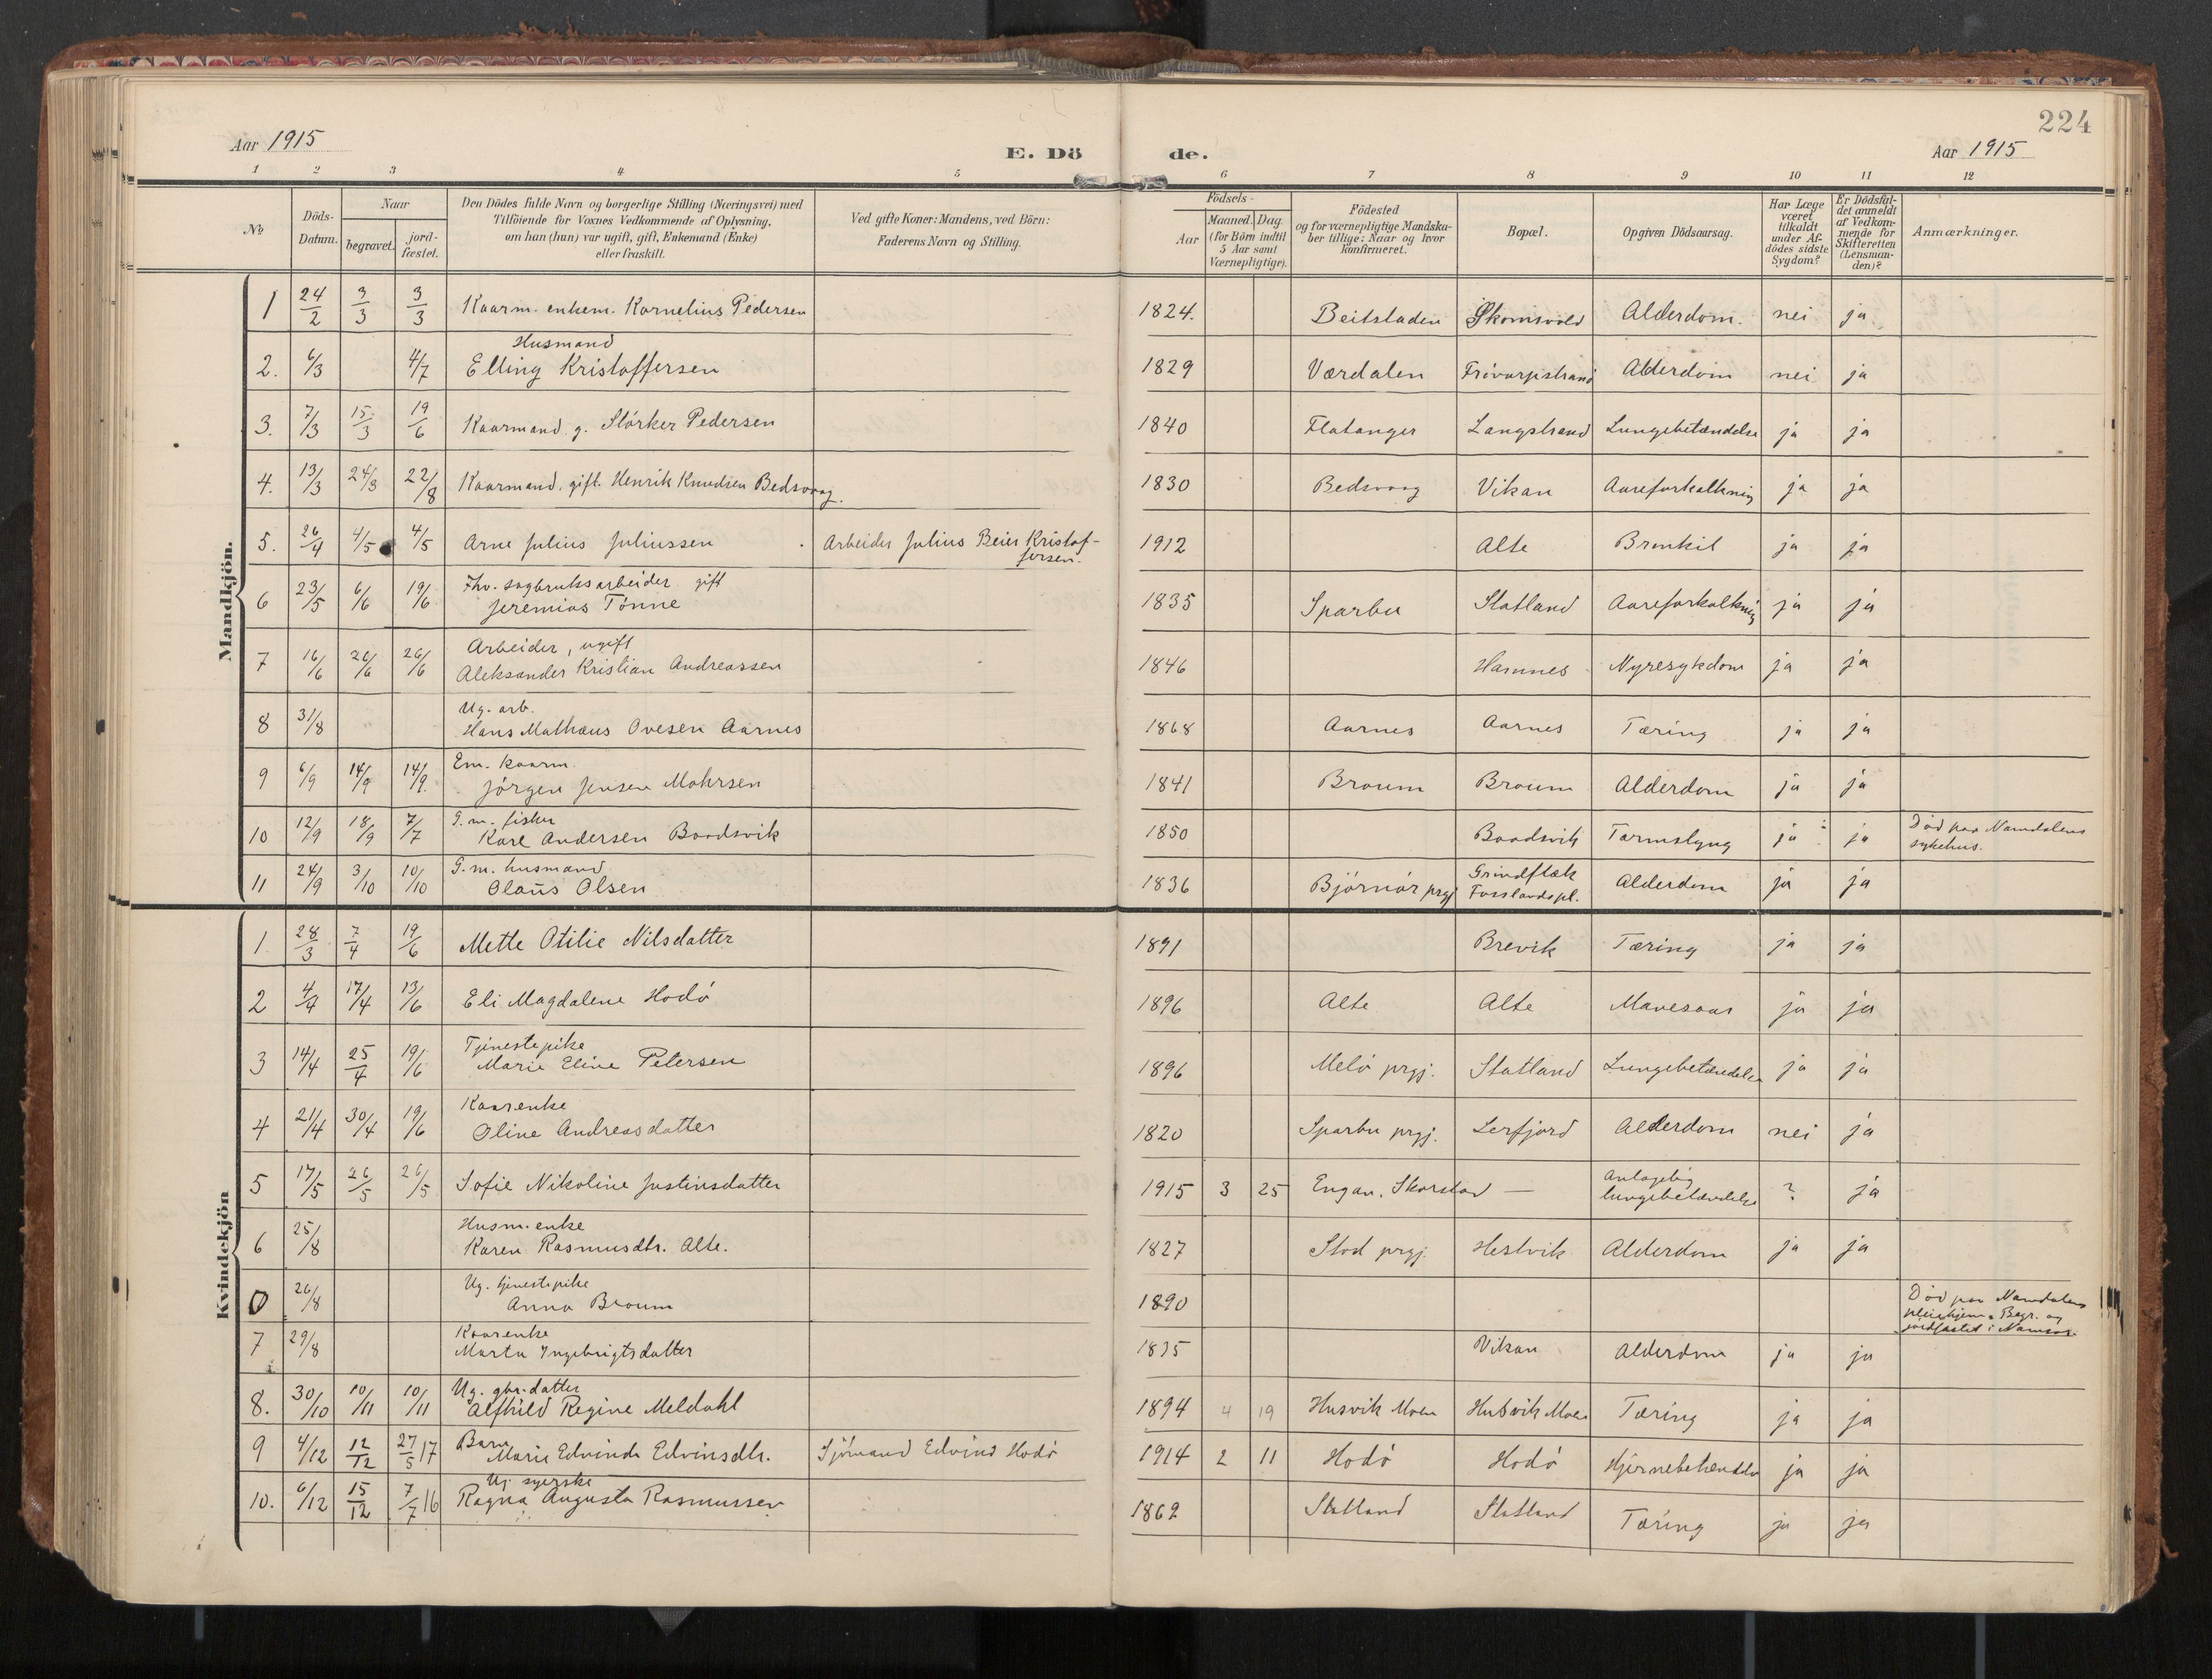 224
Aar 1915
E. Dö de.
Aar 1915
1 2 3 4 5 6 7 8 9 10 11 12
No
Döds-Datum.
Naar
begravet.
jord-fæstet.
Den Dödes fulde Navn og borgerlige Stilling (Næringsvei) med
Tilföiende for Voxnes Vedkommende af Oplysning,
om han (hun) var ugift, gift, Enkemand (Enke)
eller fraskilt.
Ved gifte Koner: Mandens, ved Börn:
Faderens Navn og Stilling.
Födsels-
Aar
Maaned. Dag.
(for Börn indtil
5 Aar samt
Værnepligtige).
Födested
og for værnepligtige Mandska-
ber tillige: Naar og hvor
konfirmeret.
Bopæl.
Opgiven Dödsaarsag.
Har Læge
været
tilkaldt
under Af-
dödes sidste
Sygdom?
Er Dödsfal-
det anmeldt
af Vedkom-
mende for
Skifteretten
(Lensman-
den)?
Anmærkninger.
Mandkjön.
1 24/2 3/3 3/3 Kaarm. enkem. Kornelius Pedersen 1824. Beitstaden Skomsvold Alderdom. nei ja
Husmand
2. 6/3 4/7 Elling Kristoffersen 1829 Værdalen Frövarpstrand Alderdom nei ja
3. 7/3 15/3 19/6 Kaarmand. g. Stórker Pedersen 1840 Flatanger Langstrand Lungebetændelse ja ja
4. 13/3 24/3 22/8 Kaarmand. gift. Henrik Knudsen Bedsvaag. 1830 Bedsvaag Vikan Aareforkalkning ja ja
5. 26/4 4/5 4/5 Arne Julius Juliussen Arbeider Julius Beier Kristof- 1912 Alte Bronkit ja ja
fersen.
Fhv. sagbruksarbeider gift
6 23/5 6/6 19/6 Jeremias Tönne 1835 Sparbu Statland Aareforkalkning ja ja
Arbeider, ugift
7 16/6 26/6 26/6 Aleksander Kristian Andreassen 1846 Hamnes Nyresykdom ja ja
Ug. arb.
8 31/8 Hans Mathæus Ovesen Aarnes 1868 Aarnes Aarnes Tæring ja ja
Em. kaarm.
9 6/9 14/9 14/9. Jörgen Jensen Mohrsen 1841 Braum Braum Alderdom ja ja
G.m. fisker
10 12/9 18/9 7/7 Kare Andersen Baadsvik 1850 Baadsvik Tarmslyng ja ja Död paa Namdalens
sykehus.
G.m. husmand
11 24/9 3/10 10/10 Olaus Olsen 1836 Björnör prgj Grindflæk Alderdom ja ja
Fosslandspl.
Kvindekjön
1. 28/3 7/4 19/6 Mette Otilie Nilsdatter 1891 Brevik Tæring ja ja
2 4/4 17/4 13/6 Eli Magdalene Hodö 1896 Alte Alte Mavesaar ja ja
Tjenestepike
3 14/4 25/4 19/6 Marie Eline Petersen 1896 Melö prgj. Statland Lungebetændelse ja ja
Kaarenke
4 21/4 30/4 19/6 Oline Andreasdatter 1820 Sparbu prgj. Lerfjord Alderdom nei ja
5 17/5 26/5 26/5 Sofie Nikoline Justinsdatter 1915 3 25 Engan. Skorstad — Antagelig
lungebetændelse ? ja
Husm. enke
6 25/8 Karen Rasmusdtr. Alte. 1827 Stod prgj. Hestvik Alderdom ja ja
Ug. tjenestepike
0 26/8 Anna Braum 1890 Död paa Namdalens
pleiehjem. Begr. og
jordfæstet i Namsos.
Kaarenke
7 29/8 Marta Ingebrigtsdatter 1835 Vikan Alderdom ja ja
Ug. gbr.datter
8. 30/10 10/11 10/11 Alfhild Regine Meldahl 1894 4 19 Husvik Moen Husvik Moen Tæring ja ja
Barn
9 4/12 12/12 27/5 17 Marie Edvinda Edvinsdtr. Sjömand Edvind Hodö 1914 2 11 Hodö Hodö Hjernebetændelse ja ja
Ug syerske
10. 6/12 15/12 7/7 16 Ragna Augusta Rasmussen 1862 Statland Statland Tæring ja ja